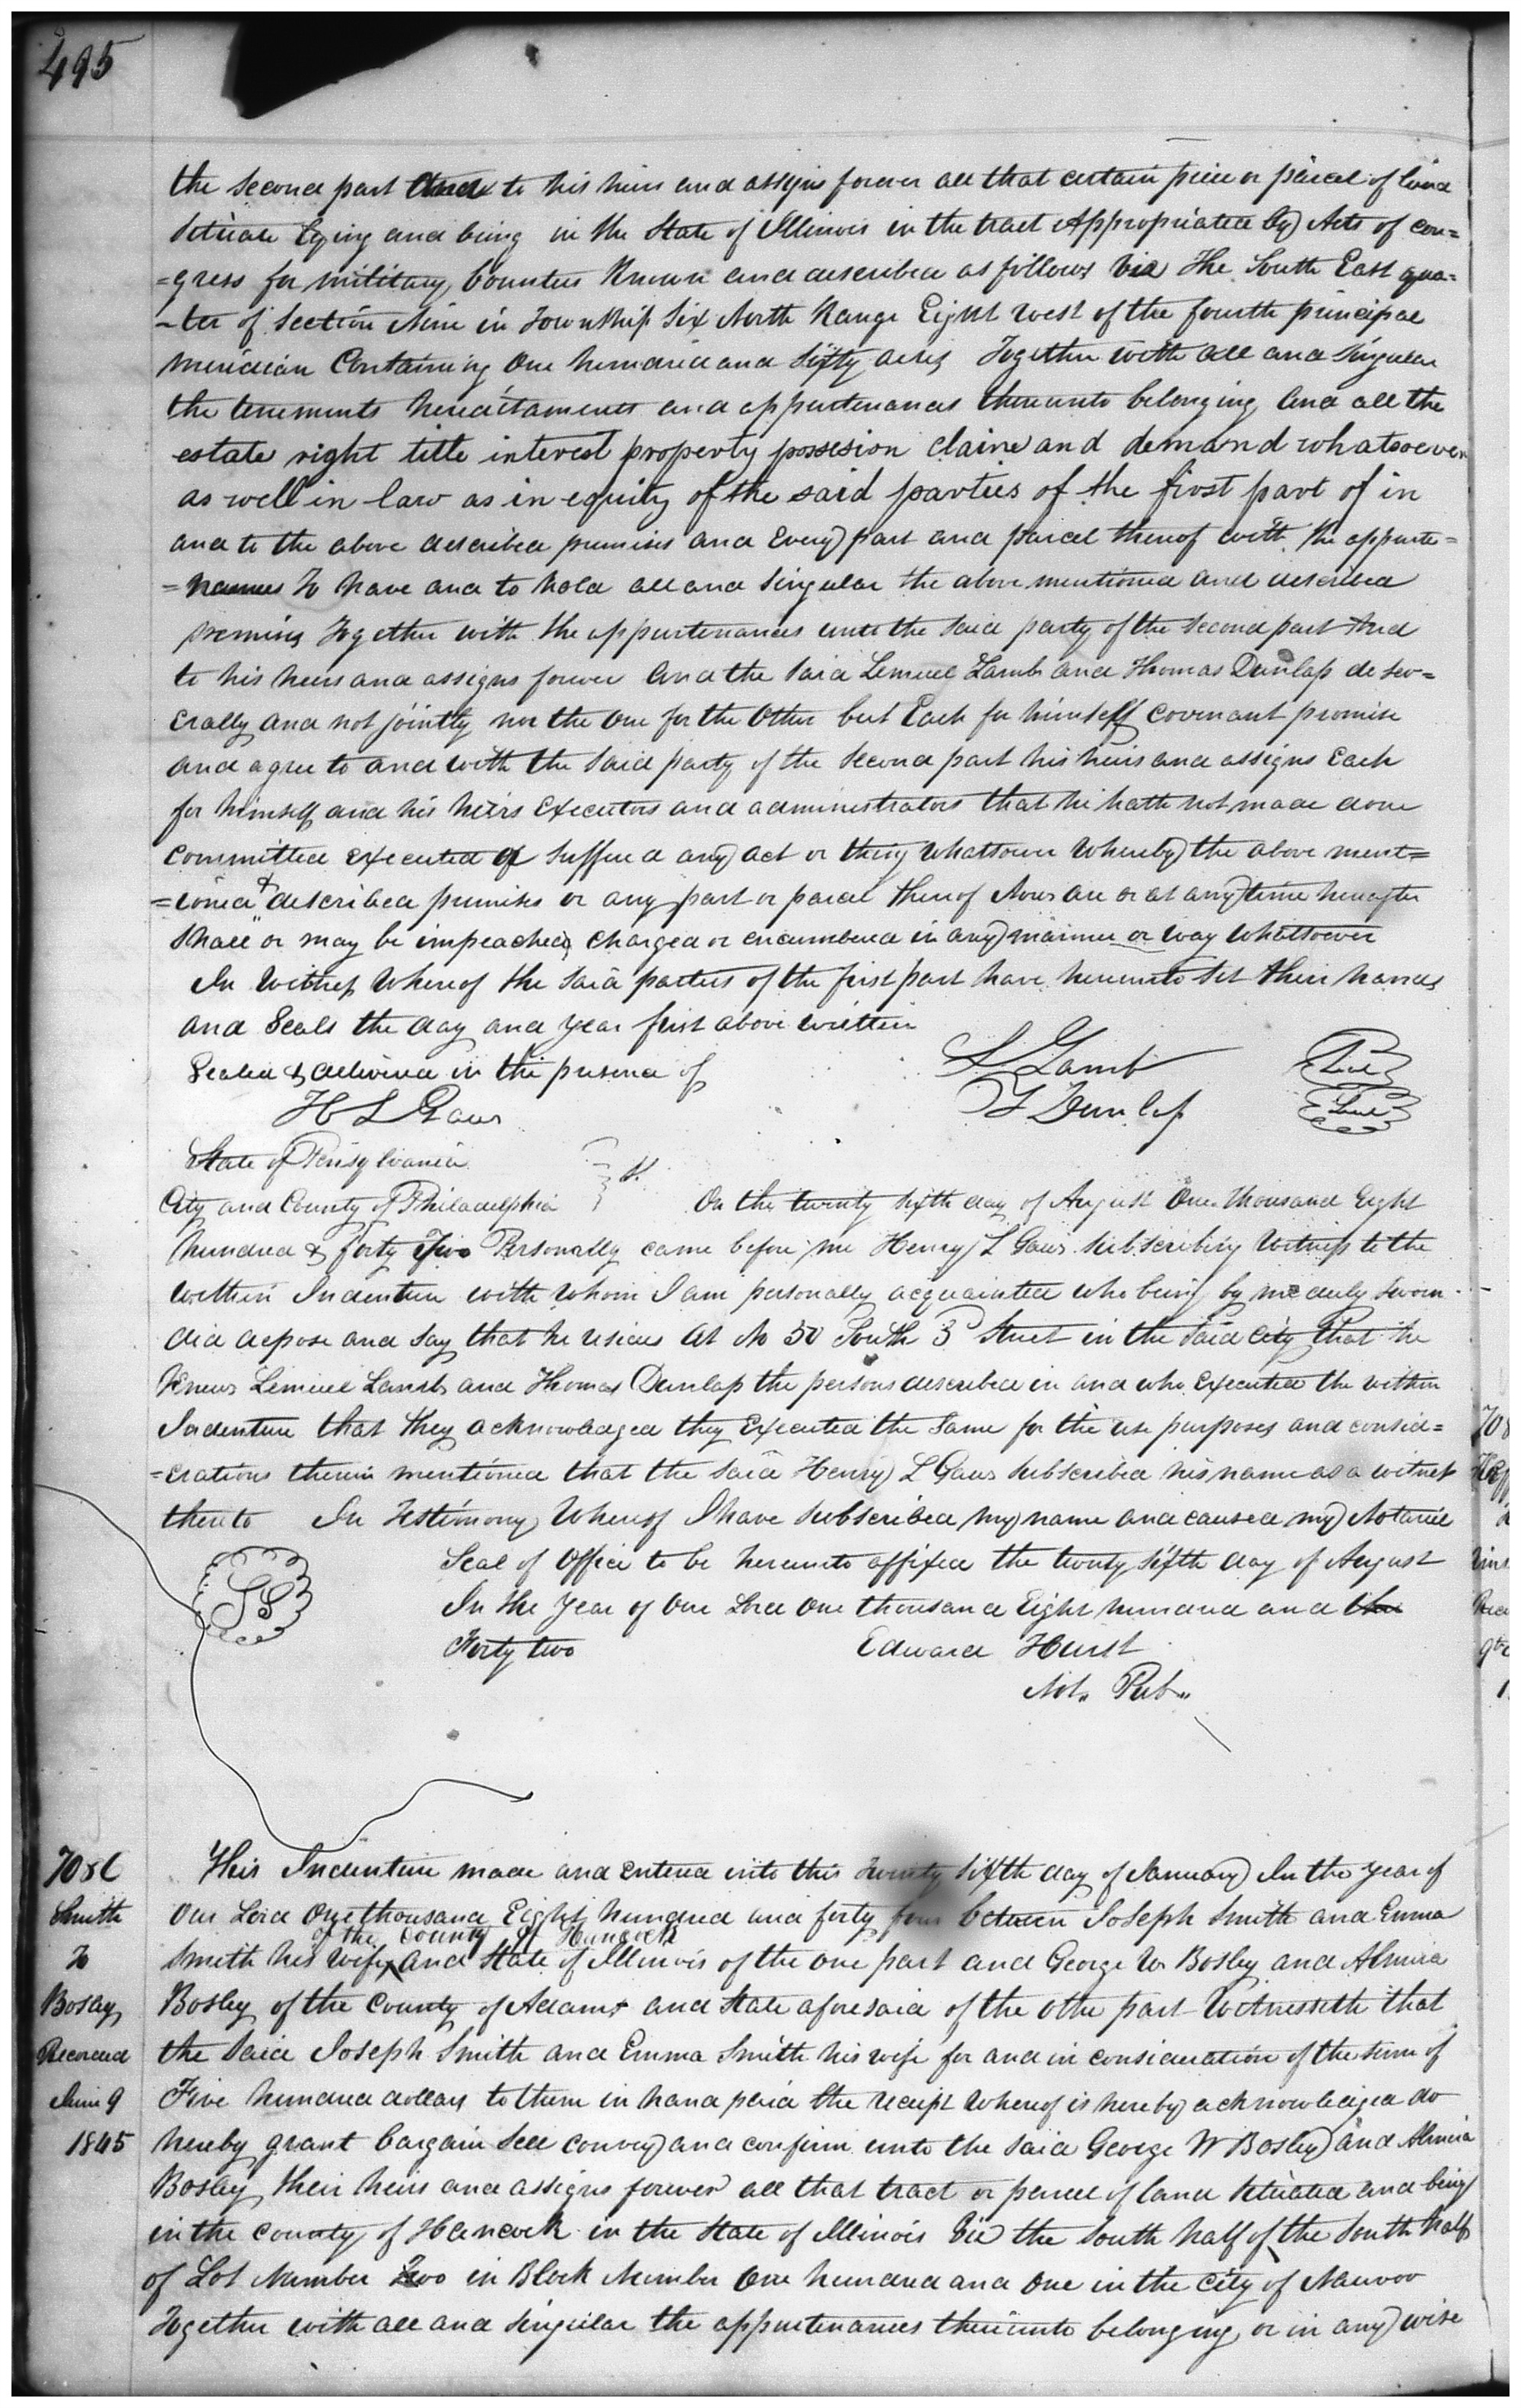 495
the second part and to his heirs and assigns forever all that certain piece or parcel of land
Situate lying and being in the State of Illinois in the tract Appropriated by Acts of con=
=gress for military bounties Known and described as follows Viz The South East qua=
-ter of Section Nine in Township Six North Range Eight West of the fourth principal
meridian Containing One hundred and sixty acres Together with all and singular
the tenements hereditaments and appurtenances thereunto belonging And all the
estate right title interest property possesion claim and demand whatsoever
as well in law as in equity of the said parties of the first part of in
and to the above described premises and Every part and parcel thereof with the appurte=
=nances To have and to hold all and Singular the above mentioned and described
premises Together with the appurtenances unto the said party of the second part And
to his heirs and assigns forever And the said Lemuel Lamb and Thomas Dunlap do sev=
erally and not jointly nor the One for the Other but Each for himself covenant promise
and agree to and with the said party of the second part his heirs and assigns Each
for himself and his heirs Executors and administrators that he hath not made done
committed executed or suffered any act or thing whatsoever Whereby the above ment=
=ioned & described premises or any part or parcel thereof Now are or at any time hereafter
Shall or may be impeached Charged or encumbered in any manner or way whatsoever
In Witness Whereof the said parties of the first part have hereunto set their hands
and Seals the day and year first above written
Sealed & delivered in the presence of
L Lamb Seal
H L Gaw
T Dunlap Seal
State of Pensylvania
City and County of Philadelphia On the twenty sixth day of August One thousand Eight
hundred & forty Two Personally came before me Henry L Gaw subscribing Witness to the
within Indenture with whom I am personally acquainted who being by me duly sworn
did depose and say that he resides At No 50 South 3d Street in the said City That he
Knew Lemuel Lamb and Thomas Dunlap the persons described in and who Executed the within
Indenture that they acknowledged they Executed the Same for the use purposes and consid=
=erations therein mentioned that the said Henry L Gaw subscribed his name as a witness
thereto In Testimony Whereof I have subscribed my name and caused my Notarial
Seal of Office to be hereunto affixed the twenty sixth day of August
In the Year of Our Lord One thousand Eight hundred and
Forty two Edward Hurst
Not. Pub.
This Indenture made and entered into this Twenty Sixth day of January In the year of
Smith
Our Lord One thousand Eight hundred and forty four between Joseph Smith and Emma
of the County of Hancock
To
Smith his Wife and State of Illinois of the one part and George W Bosley and Almira
Bosley
Bosley of the County of Adams and State aforesaid of the other part Witnesseth that
Recorded
the said Joseph Smith and Emma Smith his wife for and in consideration of the sum of
June 9
Five hundred dollars to them in hand paid the receipt Whereof is hereby acknowledged do
1845
hereby grant bargain Sell convey and confirm unto the said George W Bosley and Almira
Bosley their heirs and assigns forever all that tract or parcel of land situated and being
in the County of Hancock in the State of Illinois Viz the South half of the South half
of Lot Number Two in Block Number One hundred and One in the City of Nauvoo
Together with all and singular the appurtenances thereunto belonging or in any wise